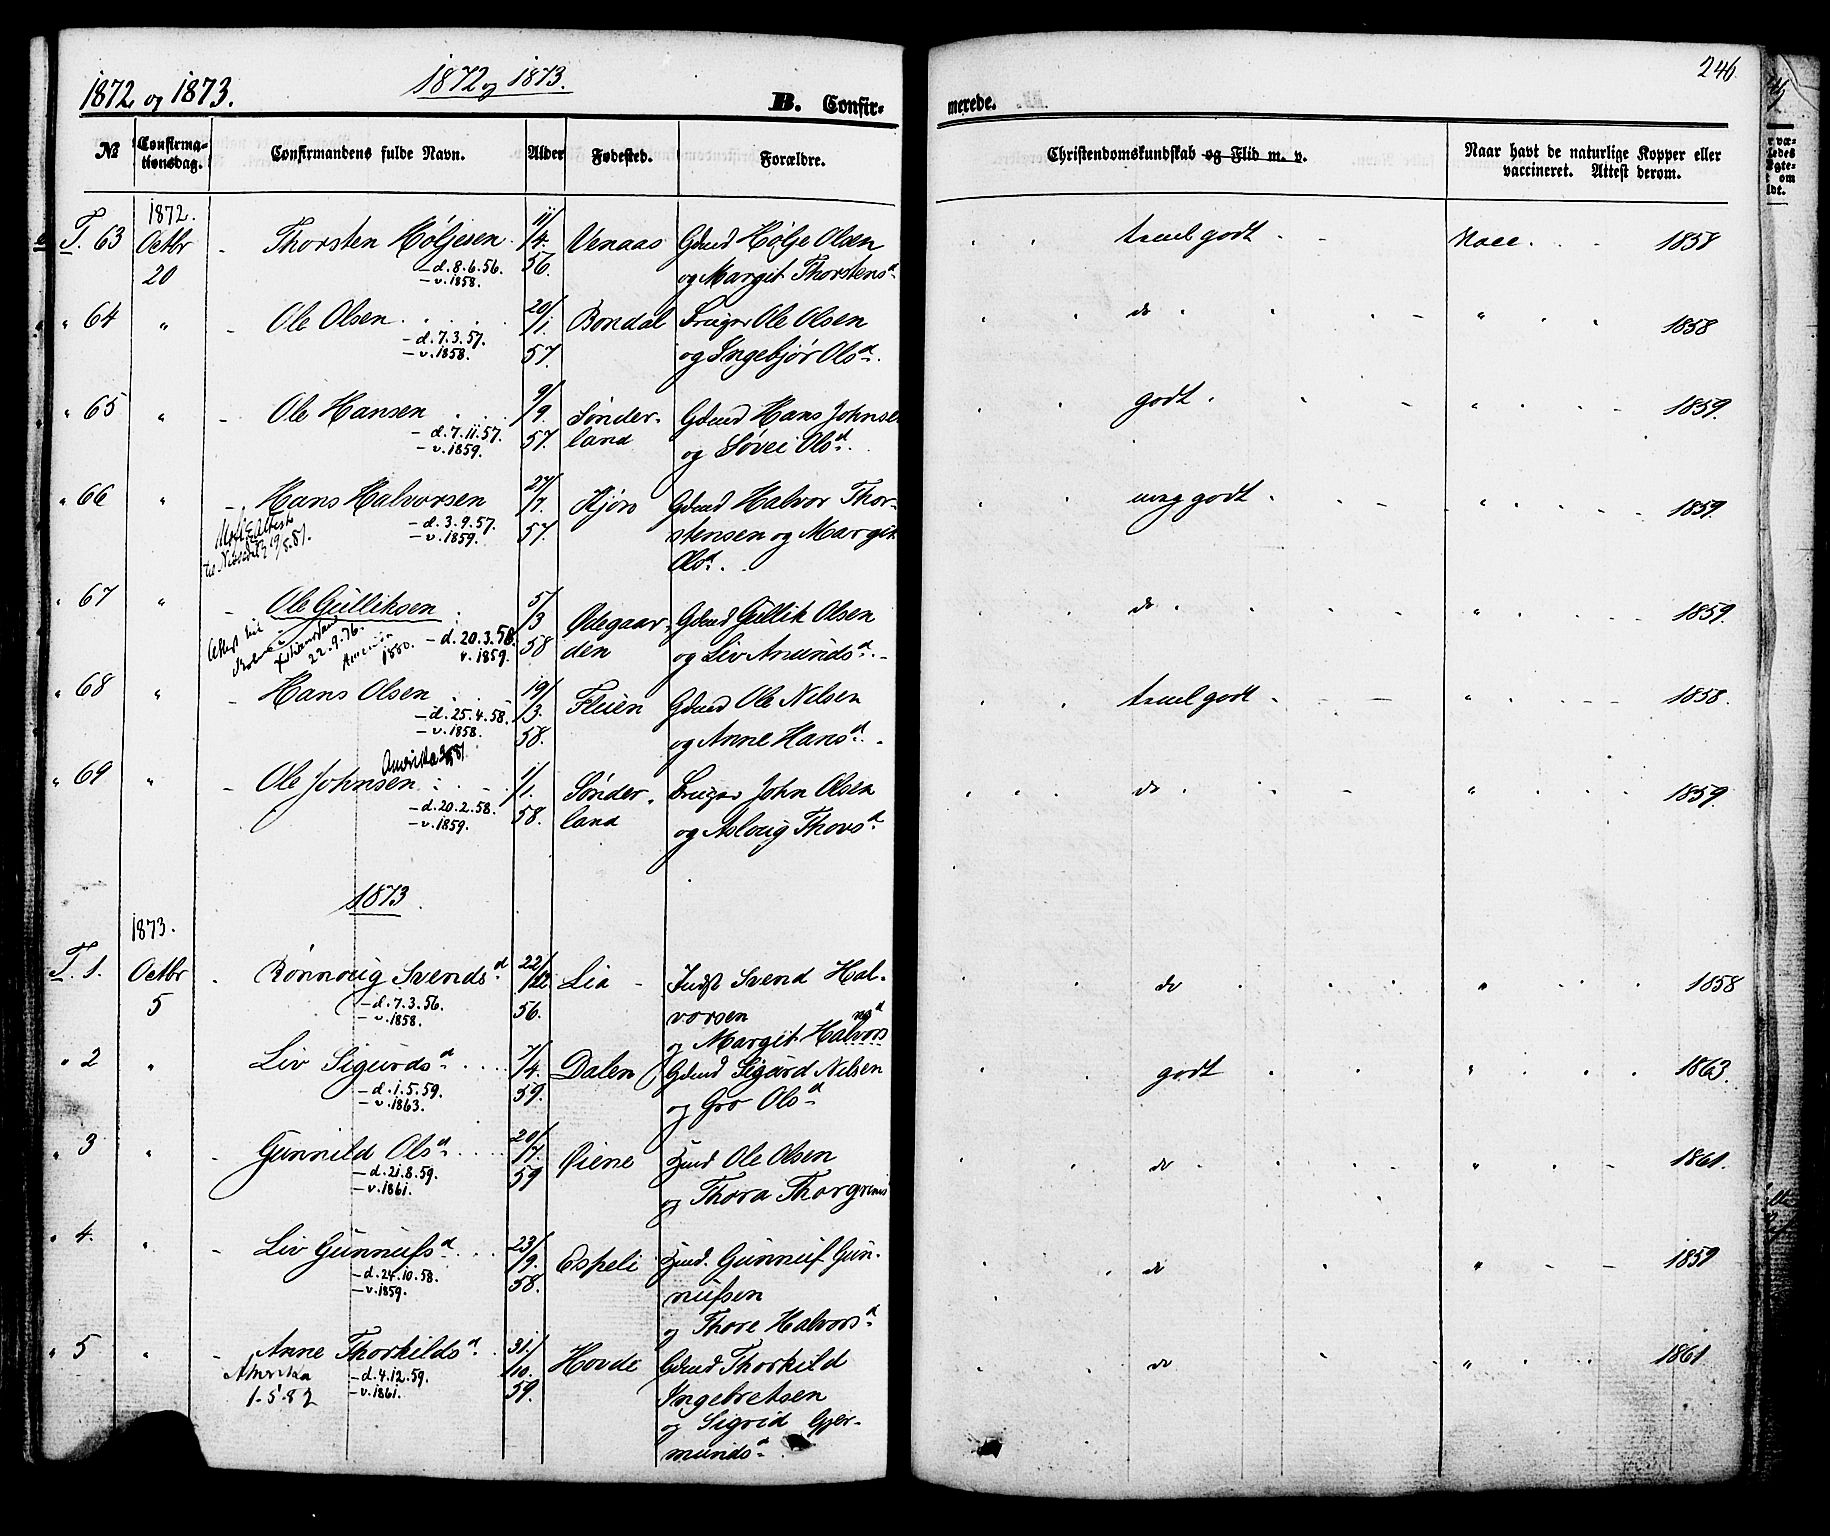 1872 og 1873. 1872 og 1873. B. Confir-
merede. 246
№ Confirma-tionsdag. Confirmandens fulde Navn. Alder Fødested. Forældre. Christendomskundskab og Flid m. v. Naar havt de naturlige Kopper eller vaccineret. Attest derom.
1872.
T. 63 Octbr Thorsten Høljesen 11/4. Venaas Gdmd Hølje Olsen taal godt Vacc. 1858
20 - d. 8.6.56. 56. og Margit Thorstensd
- v. 1858.
" 64 " Ole Olsen 20/1. Bondal Bruger Ole Olsen do " 1858
- d. 7.3.57. 57. og Ingebjør Olsd.
- v. 1858.
" 65 " Ole Hansen 9/9. Sønder- Gdmd Hans Johnse godt " 1859.
- d. 7.11.57. 57. land og Søvei Olsd.
- v. 1859.
" 66 " Hans Halvorsen 27/7. Kjøs Gdmd Halvor Thor- meg godt " 1859.
- d. 3.9.57. 57 stensen og Margit
- v. 1859. Olsd.
" 67 " Ole Gulliksen 5/3 Ødegaar- Gdmd Gullik Olsen do " 1859
Attest til 22.9.76. Amerika 1880. - d. 20.3.58. 58 den og Liv Anundsd.
v. 1859.
" 68 " Hans Olsen 19/3. Fleien Gdmd Ole Nilsen taal godt " 1858.
- d. 25.4.58. 58. og Anne Hansd.
- v. 1858.
Amerika
" 69 " Ole Johnsen 1/1. Sønder- Bruger John Olsen do " 1859
- d. 20.2.58. 58. land og Asloug Thovsd.
- v. 1859.
1873
1873.
T. 1. Octbr Rønnoug Svendsd 22/12 Lia Indst Svend Hal- do " 1858
5 - d. 7.3.56. 56. vorsen
- v. 1858. og Margit Halvors
" 2 " Liv Sigurdsd 7/4. Dalen Gdmd Sigurd Nilsen godt " 1863.
- d. 1.5.59. 59. og Gro Olsd
- v. 1863.
" 3 " Gunnild Olsd 20/7. Øiene Hmd Ole Olsen do " 1861.
- d. 21.8.59. 59 og Thora Thorgrims
- v. 1861.
" 4. " Liv Gunnufsd 23/9. Espeli Hmd. Gunnuf Gun- do " 1859
- d. 24.10.58. 58. nufsen
- v. 1859. og Thore Halvorsd
" 5 " Anne Thorkildsd. 31/10. Hovde Gdmd Thorkild do " 1861
Amerika - d. 4.12.59. 59. Ingebretsen
1.5.82 - v. 1861. og Sigrid Gjer-
mundsd